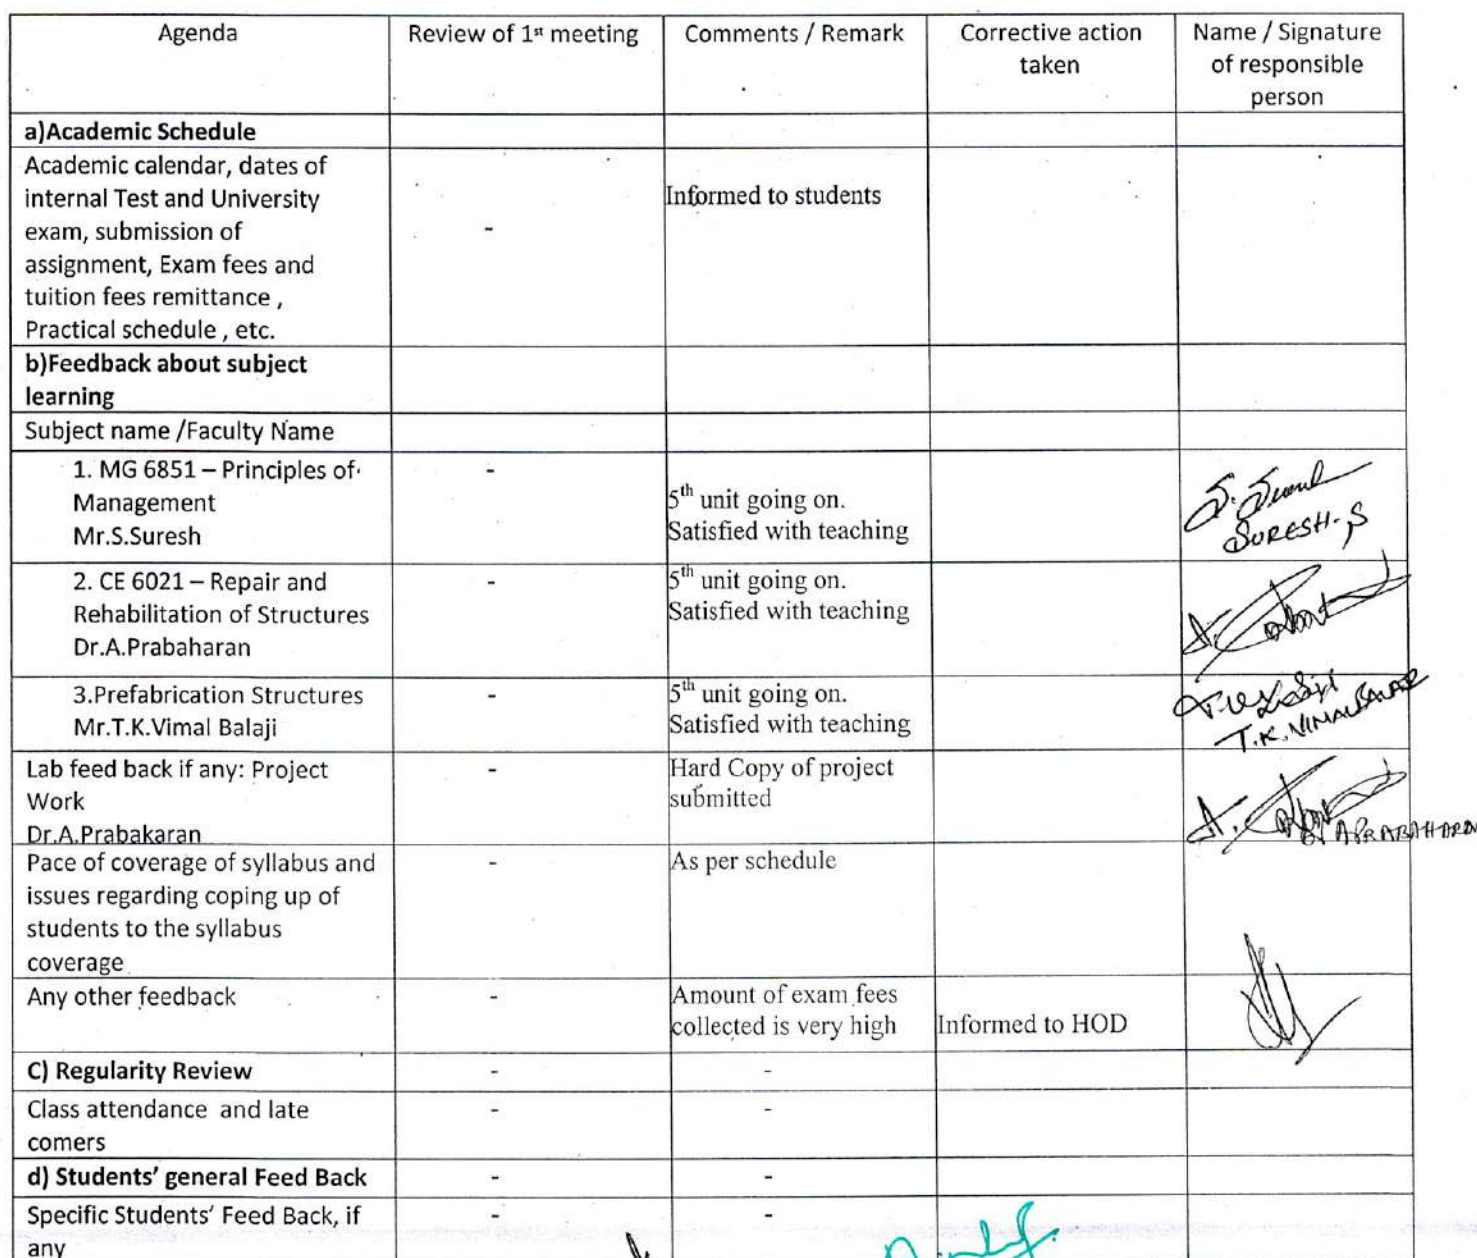 Agenda
Review of 1st meeting
Comments / Remark
Corrective action
taken
Name / Signature
of responsible
person
a)Academic Schedule
Academic calendar, dates of
internal Test and University
exam, submission of
assignment, Exam fees and
tuition fees remittance ,
Practical schedule , etc.
-
Informed to students
b)Feedback about subject
learning
Subject name /Faculty Name
1. MG 6851 – Principles of
Management
Mr.S.Suresh
-
5th unit going on.
Satisfied with teaching
SURESH-S
2. CE 6021 – Repair and
Rehabilitation of Structures
Dr.A.Prabaharan
-
5th unit going on.
Satisfied with teaching
3.Prefabrication Structures
Mr.T.K.Vimal Balaji
-
5th unit going on.
Satisfied with teaching
Lab feed back if any: Project
Work
Dr.A.Prabakaran
-
Hard Copy of project
submitted
Pace of coverage of syllabus and
issues regarding coping up of
students to the syllabus
coverage
-
As per schedule
Any other feedback
-
Amount of exam fees
collected is very high
Informed to HOD
C) Regularity Review
-
-
Class attendance and late
comers
-
-
d) Students' general Feed Back
-
-
Specific Students' Feed Back, if
any
-
-